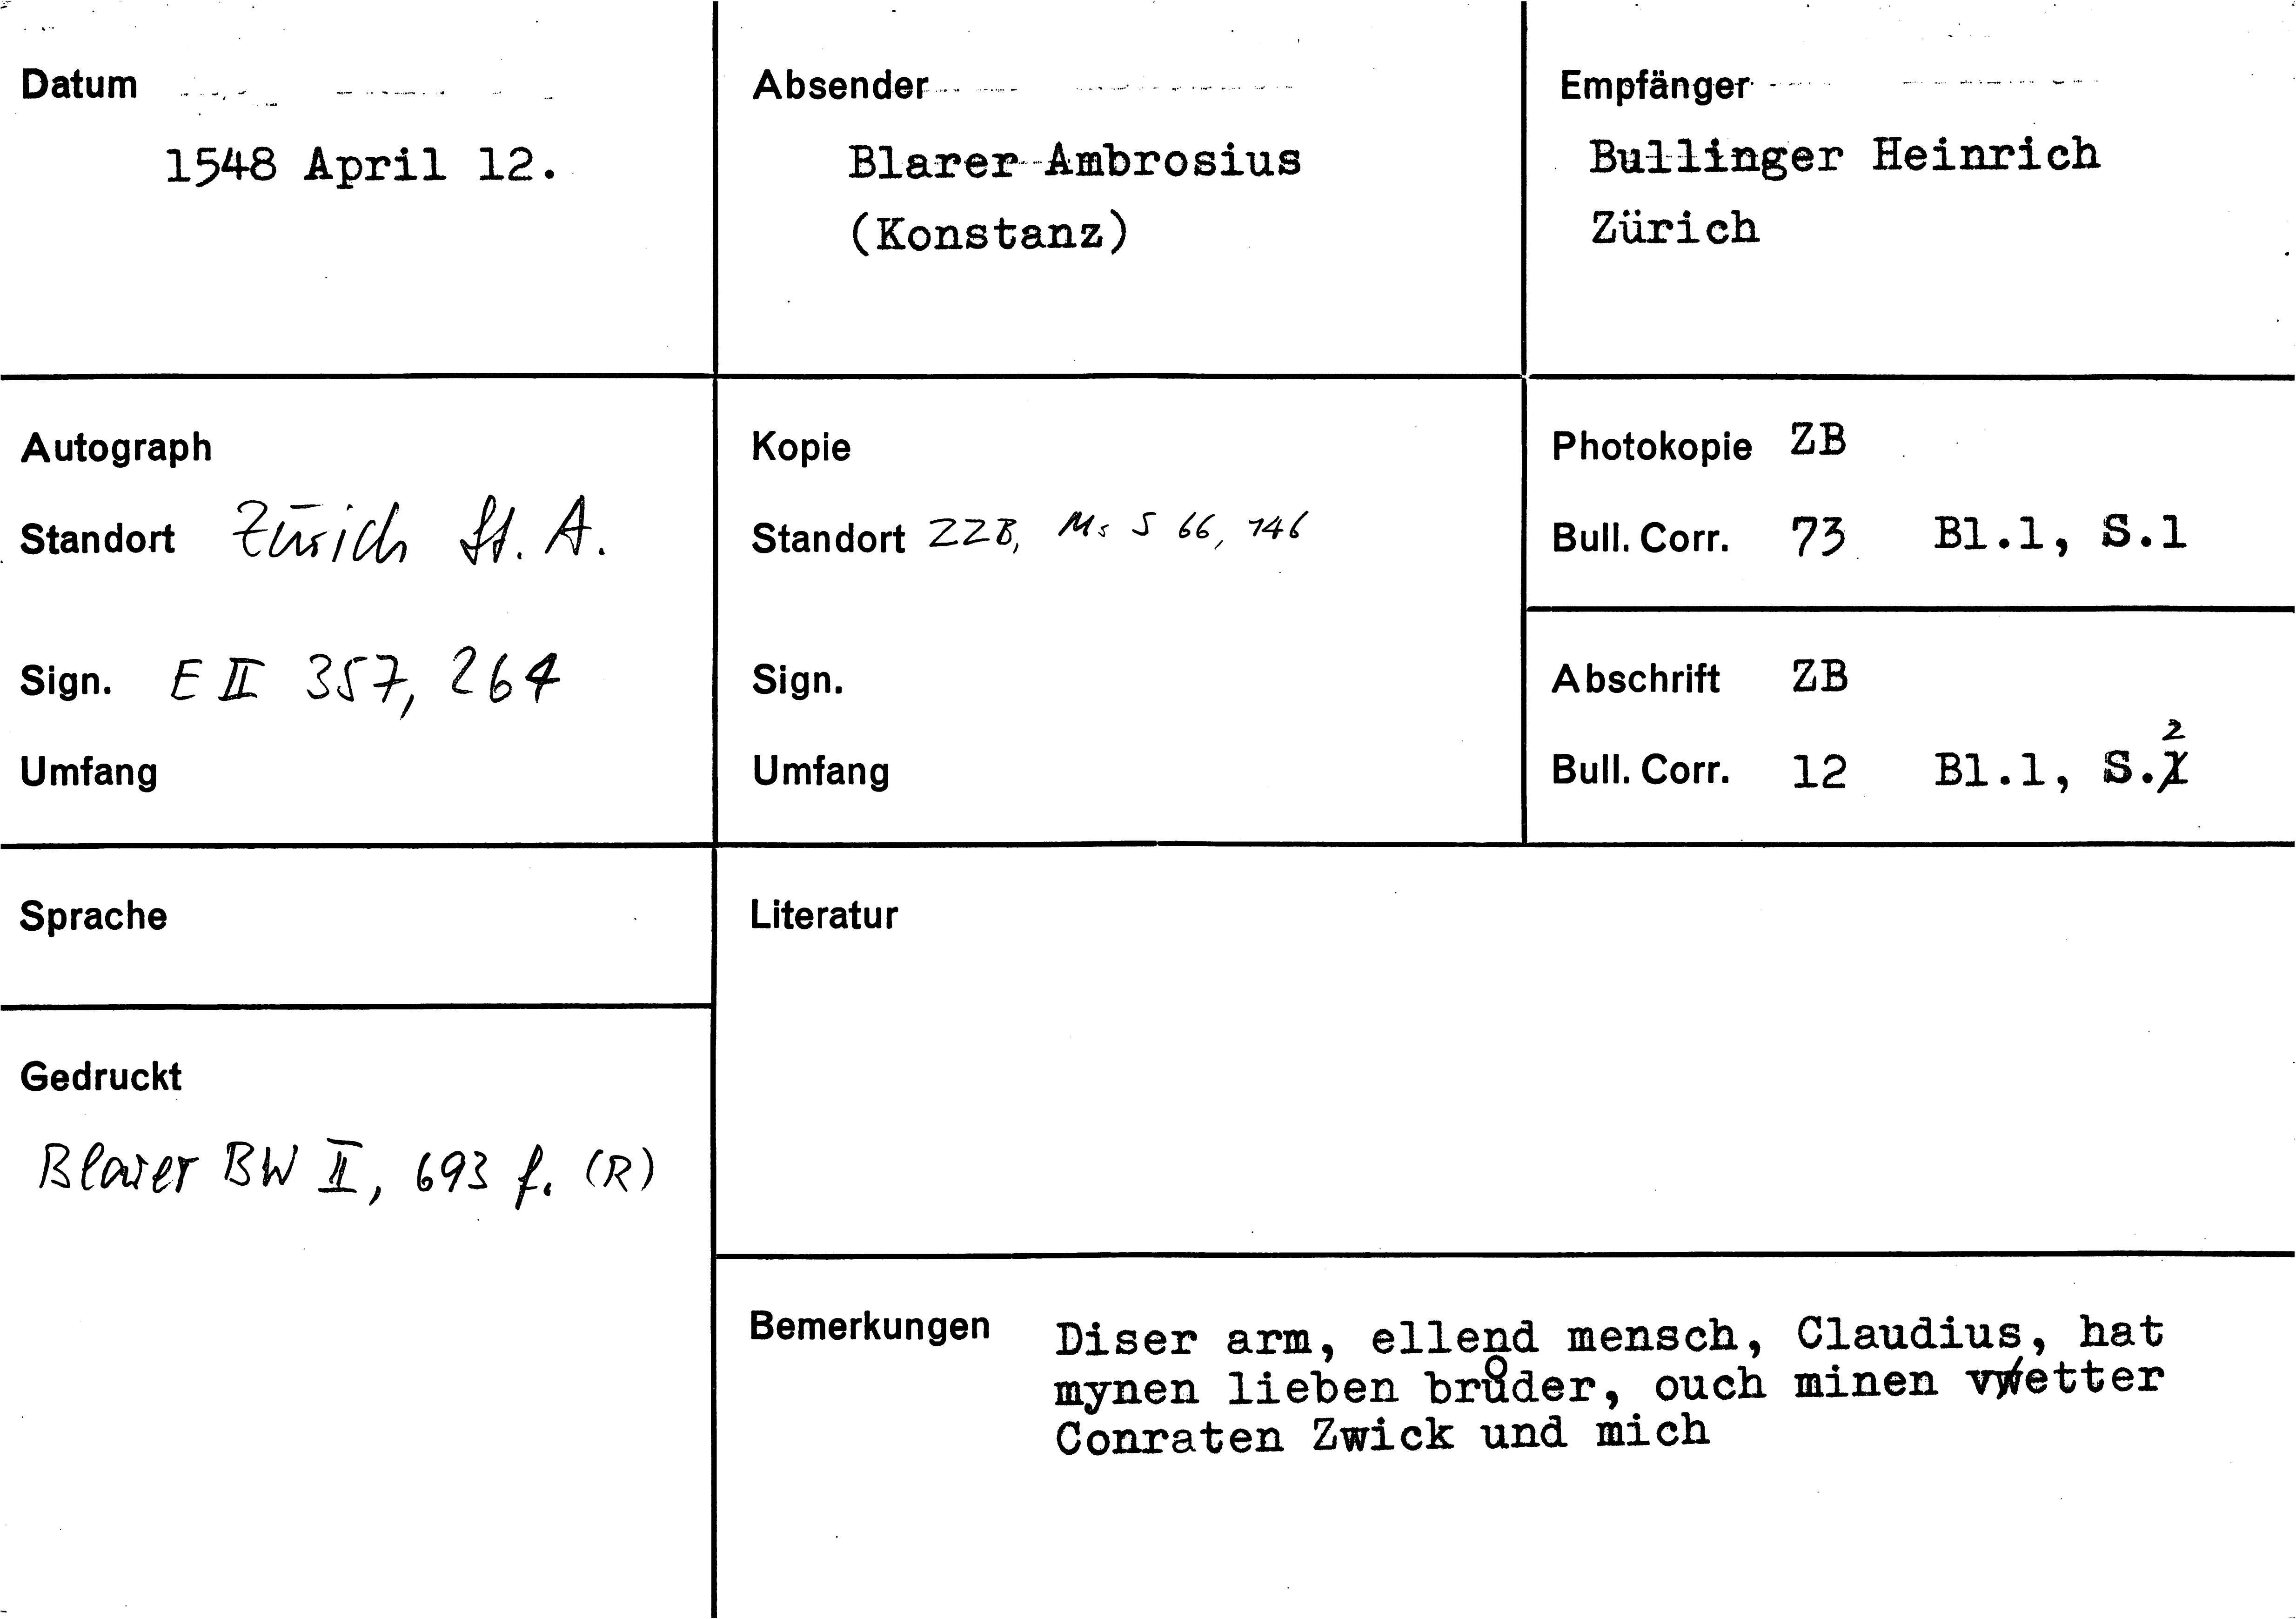 Datum
1548 April 12.
Absender
Blarer Ambrosius
(Konstanz)
Empfänger
Bullinger Heinrich
Zürich
Autograph
Standort Zürich St. A.
Sign. E II 357, 264
Umfang
Kopie
Standort ZZB, Ms S 66, 146
Sign.
Umfang
Photokopie ZB
Bull. Corr. 73 Bl.1, S.1
Abschrift ZB
Bull. Corr. 12 Bl.1, S.2
Sprache
Gedruckt
Blarer BW II, 693 f. (R)
Literatur
Bemerkungen Diser arm, ellend mensch, Claudius, hat
mynen lieben brůder, ouch minen vetter
Conraten Zwick und mich